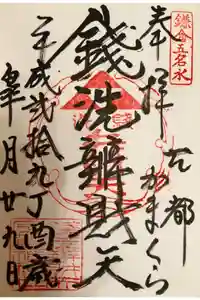 鎌倉五名水
奉拝
古都
かまくら
銭洗辨財天
平成弐拾九丁酉歳
皐月廿九日